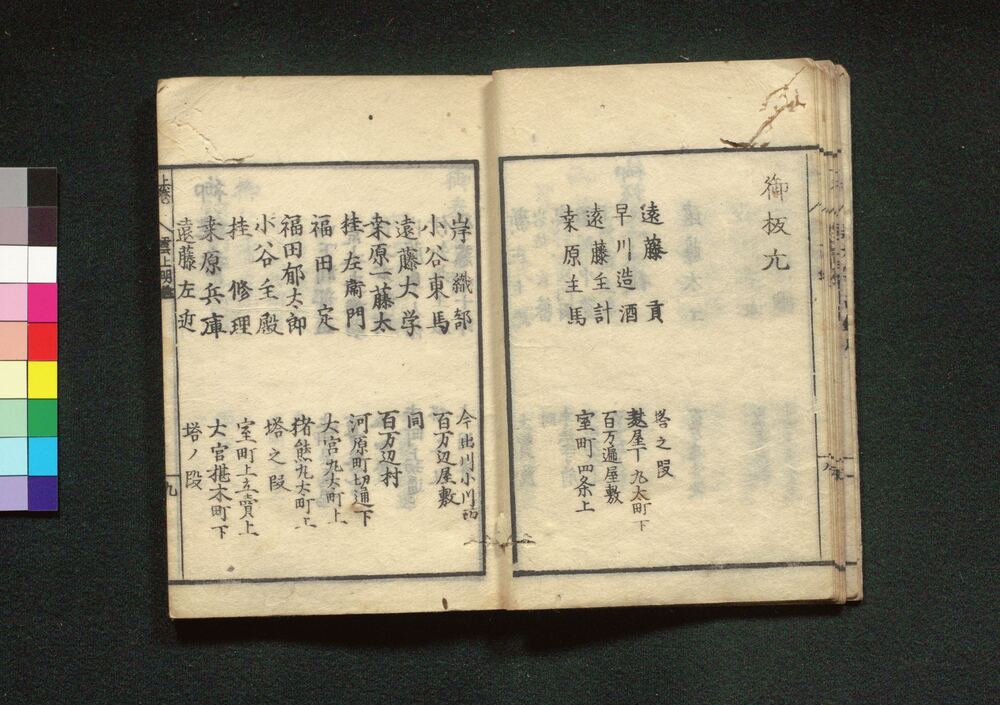 御板元
遠藤 貢 塔之段
早川造酒 麩屋丁丸太町下
遠藤主計 百万遍屋敷
桒原主馬 室町四条上
岸織部 今出川小川西
小谷東馬 百万辺屋敷
遠藤大学 同
桒原一藤太 百万辺村
桂左衛門 河原町切通下
福田 定 大宮丸太町上
福田郁太郎 猪熊丸太町上
小谷主殿 塔之段
桂 修理 室町上立賣上
桒原兵庫 大宮椹木町下
遠藤左近 塔ノ段
上巻
雲上明
九